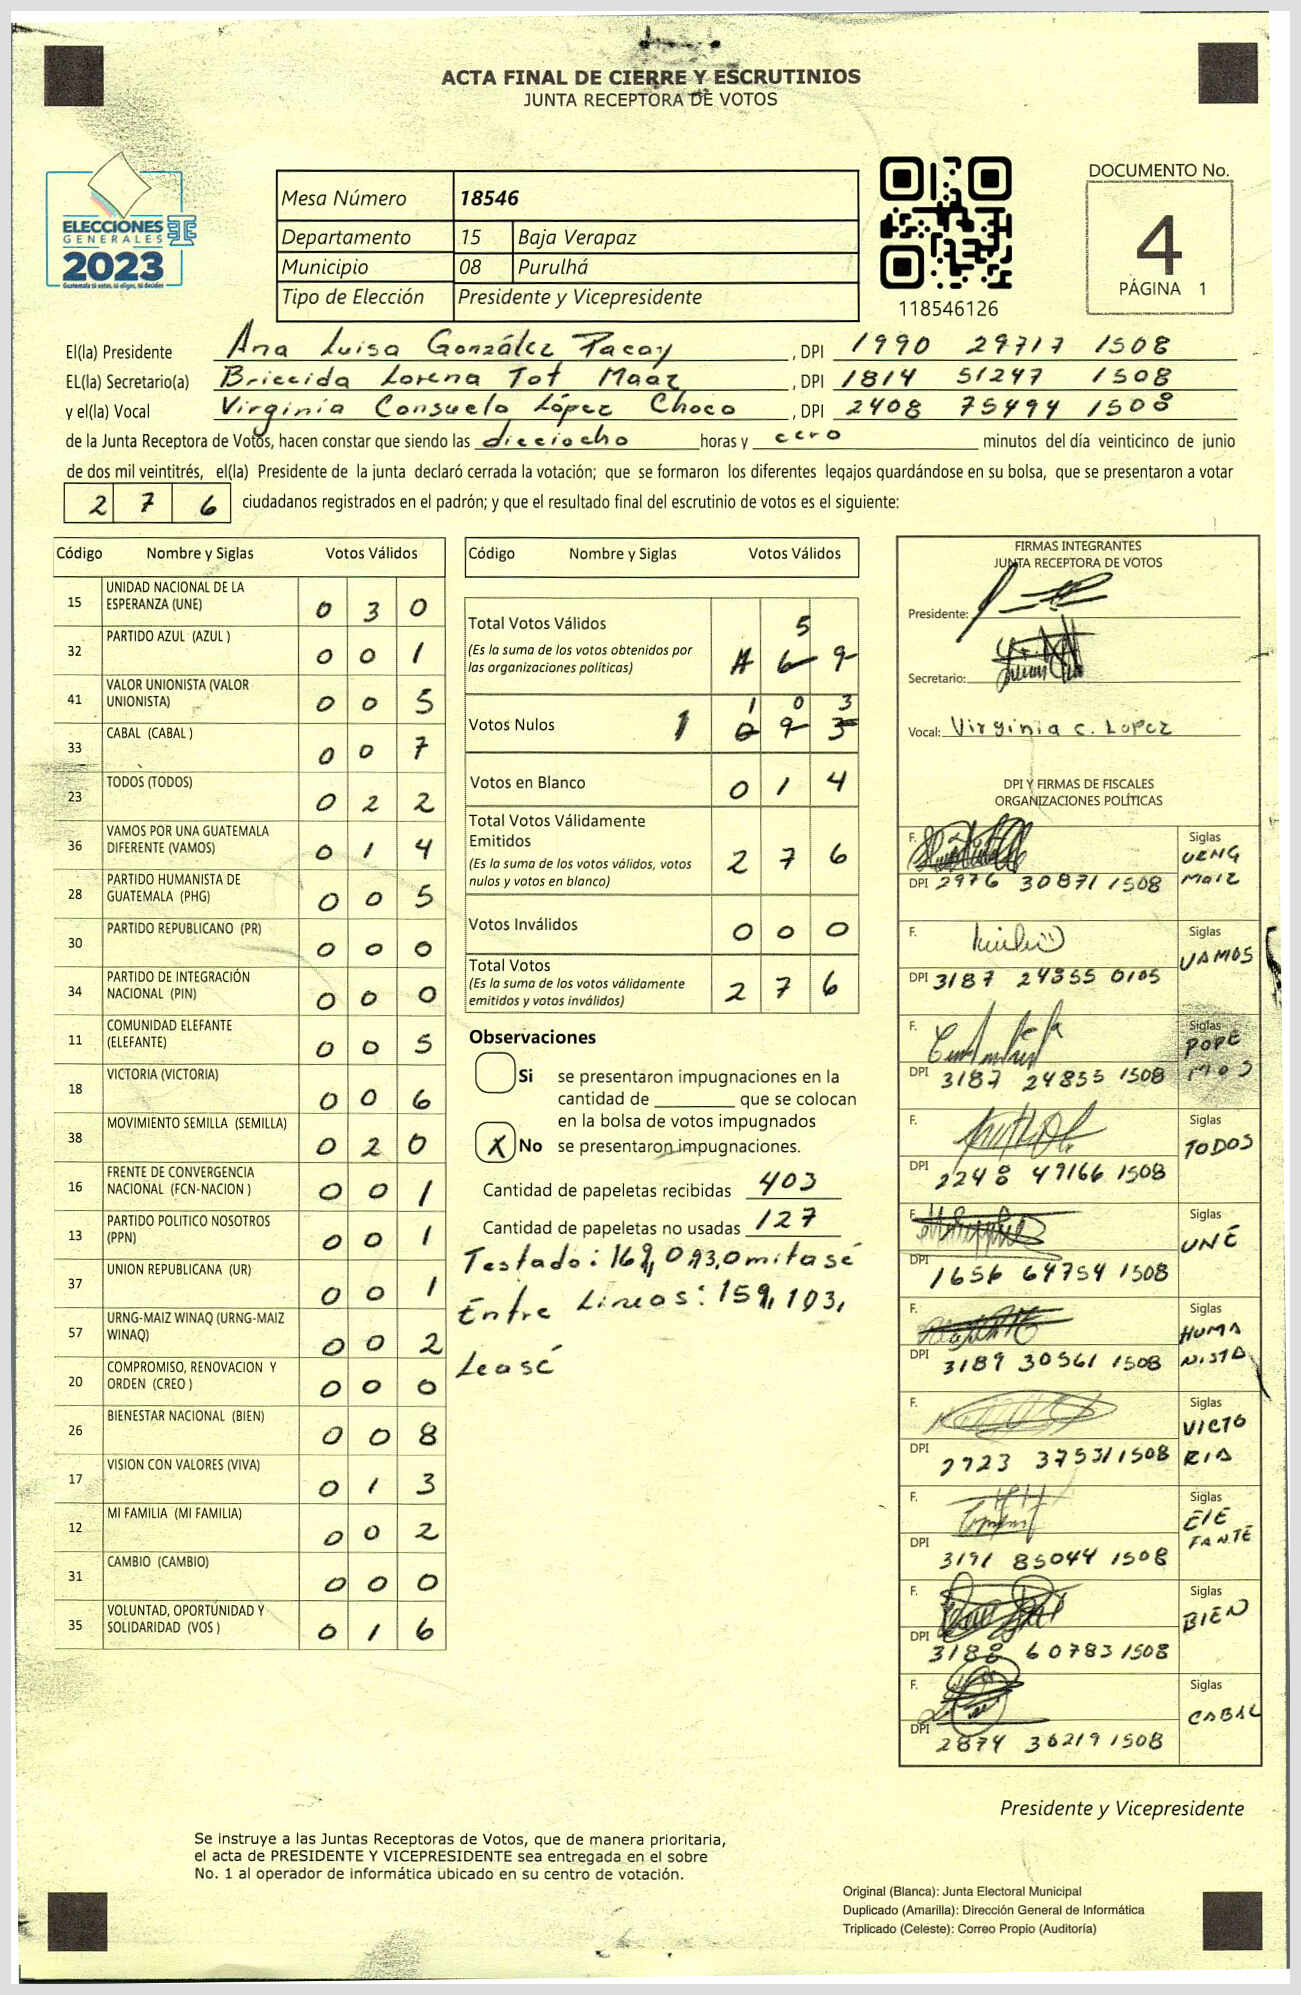 ACTA FINAL DE CIERRE Y ESCRUTINIOS
JUNTA RECEPTORA DE VOTOS
ELECCIONES
GENERALES
2023
Guatemala tú votas, tú eliges, tú decides
Mesa Número 18546
Departamento 15 Baja Verapaz
Municipio 08 Purulhá
Tipo de Elección Presidente y Vicepresidente
118546126
DOCUMENTO No.
4
PÁGINA 1
El(la) Presidente Ana Luisa González Pacay , DPI 1990 29717 1508
EL(la) Secretario(a) Briccida Lorena Tot Maaz , DPI 1814 51247 1508
y el(la) Vocal Virginia Consuelo López Choco , DPI 2408 75494 1508
de la Junta Receptora de Votos, hacen constar que siendo las dieciocho horas y cero minutos del día veinticinco de junio
de dos mil veintitrés, el(la) Presidente de la junta declaró cerrada la votación; que se formaron los diferentes legajos quardándose en su bolsa, que se presentaron a votar
2 7 6 ciudadanos registrados en el padrón; y que el resultado final del escrutinio de votos es el siguiente:
Código Nombre y Siglas Votos Válidos
15 UNIDAD NACIONAL DE LA ESPERANZA (UNE) 0 3 0
32 PARTIDO AZUL (AZUL ) 0 0 1
41 VALOR UNIONISTA (VALOR UNIONISTA) 0 0 5
33 CABAL (CABAL ) 0 0 7
23 TODOS (TODOS) 0 2 2
36 VAMOS POR UNA GUATEMALA DIFERENTE (VAMOS) 0 1 4
28 PARTIDO HUMANISTA DE GUATEMALA (PHG) 0 0 5
30 PARTIDO REPUBLICANO (PR) 0 0 0
34 PARTIDO DE INTEGRACIÓN NACIONAL (PIN) 0 0 0
11 COMUNIDAD ELEFANTE (ELEFANTE) 0 0 5
18 VICTORIA (VICTORIA) 0 0 6
38 MOVIMIENTO SEMILLA (SEMILLA) 0 2 0
16 FRENTE DE CONVERGENCIA NACIONAL (FCN-NACION ) 0 0 1
13 PARTIDO POLITICO NOSOTROS (PPN) 0 0 1
37 UNION REPUBLICANA (UR) 0 0 1
57 URNG-MAIZ WINAQ (URNG-MAIZ WINAQ) 0 0 2
20 COMPROMISO, RENOVACION Y ORDEN (CREO ) 0 0 0
26 BIENESTAR NACIONAL (BIEN) 0 0 8
17 VISION CON VALORES (VIVA) 0 1 3
12 MI FAMILIA (MI FAMILIA) 0 0 2
31 CAMBIO (CAMBIO) 0 0 0
35 VOLUNTAD, OPORTUNIDAD Y SOLIDARIDAD (VOS ) 0 1 6
Código Nombre y Siglas Votos Válidos
5
Total Votos Válidos 1 6 9
(Es la suma de los votos obtenidos por
las organizaciones políticas)
1 0 3
Votos Nulos 1 0 9 3
Votos en Blanco 0 1 4
Total Votos Válidamente
Emitidos 2 7 6
(Es la suma de los votos válidos, votos
nulos y votos en blanco)
Votos Inválidos 0 0 0
Total Votos 2 7 6
(Es la suma de los votos válidamente
emitidos y votos inválidos)
Observaciones
Si se presentaron impugnaciones en la
cantidad de ________ que se colocan
en la bolsa de votos impugnados
X No se presentaron impugnaciones.
Cantidad de papeletas recibidas 403
Cantidad de papeletas no usadas 127
Testado: 169, 093, Omitasé
Entre Lineas: 159, 103,
Leasé
FIRMAS INTEGRANTES
JUNTA RECEPTORA DE VOTOS
Presidente:
Secretario:
Vocal: Virginia C. Lopez
DPI Y FIRMAS DE FISCALES
ORGANIZACIONES POLÍTICAS
F. Siglas URNG MAIZ
DPI 2976 30871 1508
F. Siglas VAMOS
DPI 3187 24355 0105
F. Siglas
DPI 3187 24855 1508
F. Siglas TODOS
DPI 2248 49166 1508
F. Siglas UNE
DPI 1656 64754 1508
F. Siglas HUMANISTA
DPI 3189 30561 1508
F. Siglas VICTORIA
DPI 2923 37531 1508
F. Siglas ELEFANTE
DPI 3191 85044 1508
F. Siglas BIEN
DPI 3188 60783 1508
F. Siglas CABAL
DPI 2874 36219 1508
Presidente y Vicepresidente
Se instruye a las Juntas Receptoras de Votos, que de manera prioritaria,
el acta de PRESIDENTE Y VICEPRESIDENTE sea entregada en el sobre
No. 1 al operador de informática ubicado en su centro de votación.
Original (Blanca): Junta Electoral Municipal
Duplicado (Amarilla): Dirección General de Informática
Triplicado (Celeste): Correo Propio (Auditoría)